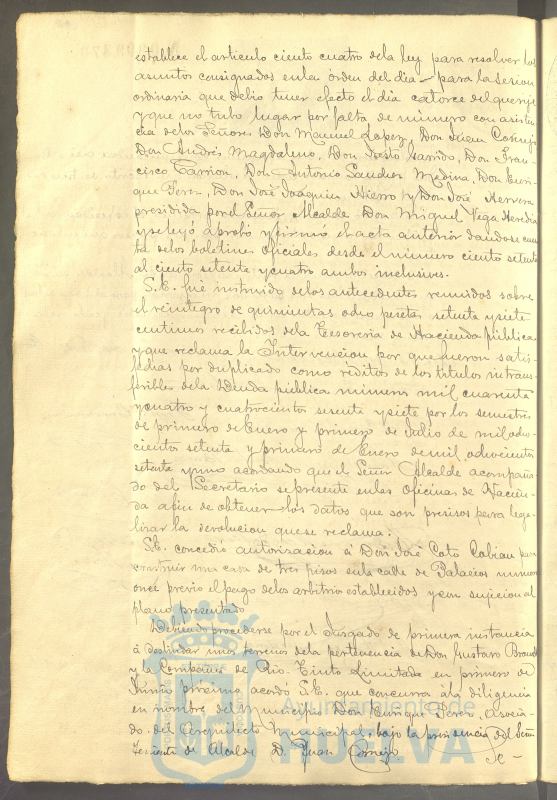 establece el articulo ciento cuatro dela ley para resolver los
asuntos consignados enla órden del dia para la sesion
ordinaria que debió tener efecto el dia catorce del que rije
y que no tubo lugar por falta de número con asisten
cia delos Señores Don Manuel Lopez, Don Juan Cornejo
Don Andrés Magdaleno, Don Justo Garrido, Don Fran-
cisco Carrion, Don Antonio Sanchez Medina, Don Enri-
que Perez, Don José Joaquin Hierro y Don José Herrera
presidida por el Señor Alcalde Don Miguel Vega Heredia
y se leyó aprobó y firmó el acta anterior dandose cuen
ta delos boletines oficiales desde el numero ciento setenta
al ciento setenta y cuatro ambos inclusives.
S.E. fué instruido delos antecedentes remitidos sobre
el reintegro de quinientas ocho pesetas setenta y siete
centimos recibidos dela Tesoreria de Hacienda pública
y que reclama la Intervencion por que fueron satis-
fechas por duplicado como réditos de los titulos intrans-
feribles dela Deuda pública numeros mil cuarenta
y cuatro y cuatrocientos sesenta y siete por los semestres
de primero de Enero y primero de Julio de mil ocho-
cientos setenta y primero de Enero de mil ochocientos
setenta y uno acordando que el Señor Alcalde acompaña-
do del Secretario se presente en las Oficinas de Hacien-
da afin de obtener los datos que son precisos para lega-
lizar la devolucion que se reclama.
S.E. concedió autorizacion á Don José Coto Cobian para
construir una casa de tres pisos en la calle de Palacios numero
once previo el pago delos arbitrios establecidos y con sujecion al
plano presentado
Debiendo procederse por el Juzgado de primera instancia
á deslindar unos terrenos dela pertenencia de Don Gustavo Brandt
y la Compañia de Rio-Tinto Limitada en primero de
Junio procsimo acordó S.E. que concurra á la diligencia
en nombre del Municipio Don Enrique Perez, asocia-
do del Arquitecto Municipal, bajo la presidencia del Señor
Teniente de Alcalde D. Juan Cornejo
Se-
Ayuntamiento de
HUELVA